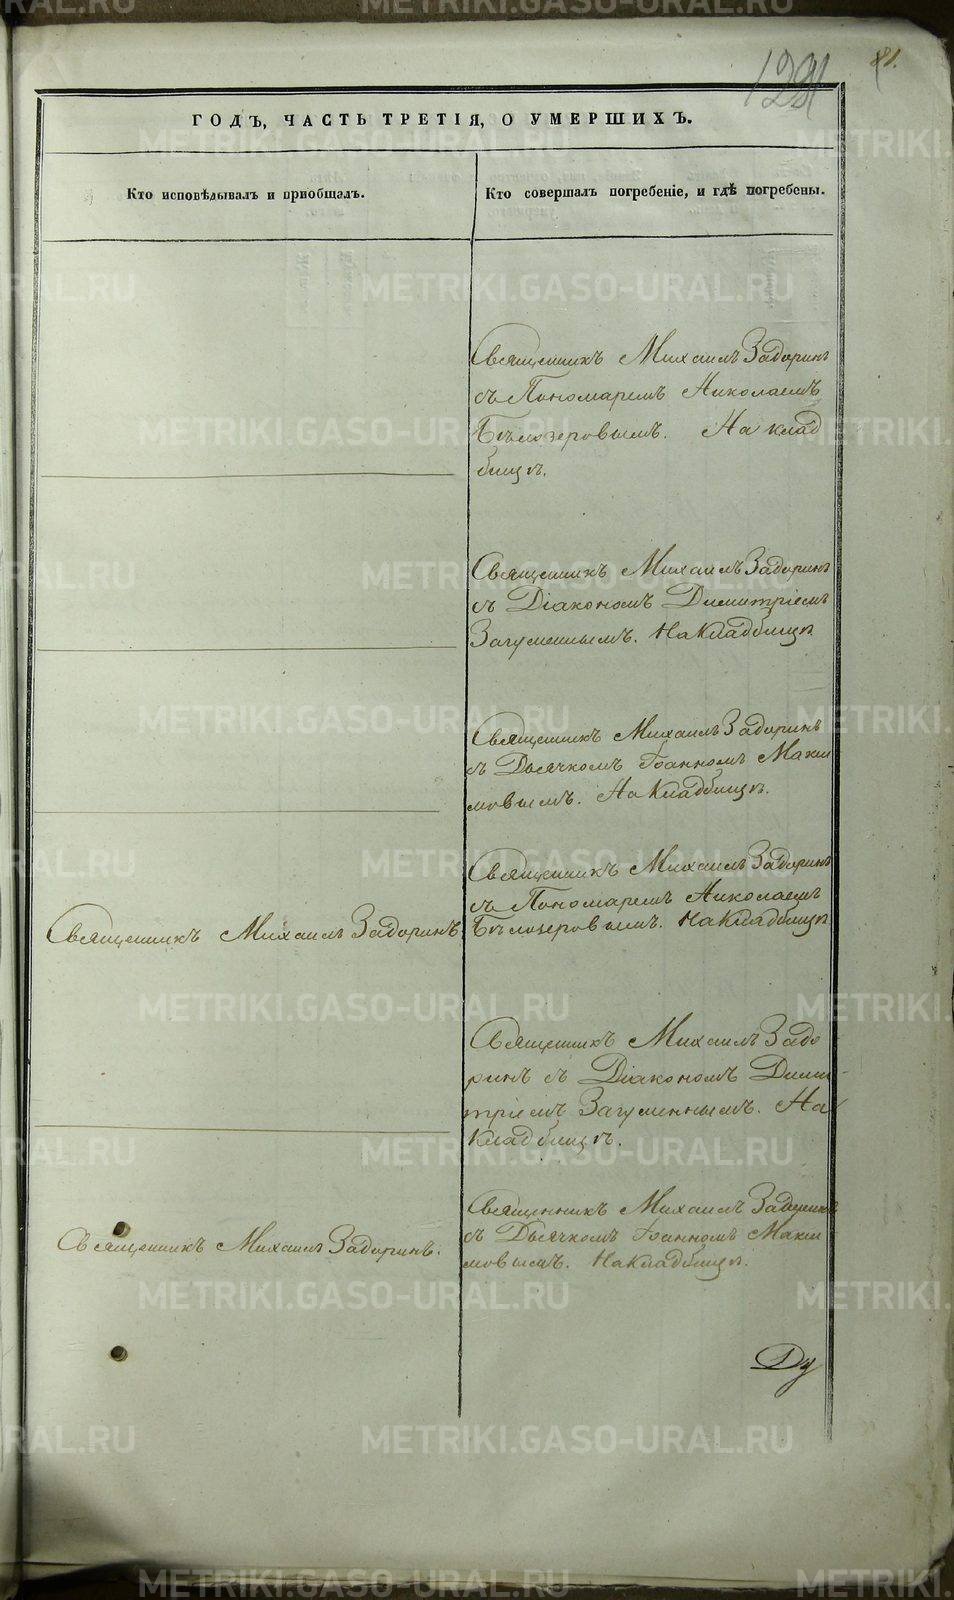 81.
ГОДЪ, ЧАСТЬ ТРЕТІЯ, О УМЕРШИХЪ.
Кто исповѣдывалъ и пріобщалъ.
Кто совершалъ погребеніе, и гдѣ погребены.
Священникъ Михаилъ Задоринъ
съ Пономаремъ Николаемъ
Бѣлозеровымъ. На клад
бищѣ.
Священникъ Михаилъ Задоринъ
съ Діакономъ Димитріемъ
Загуменнымъ. На Кладбищѣ
Священникъ Михаилъ Задоринъ
съ Дьячкомъ Іоанномъ Макси
мовымъ. На Кладбищѣ.
Священникъ Михаилъ Задоринъ
Священникъ Михаилъ Задоринъ
съ Пономаремъ Николаемъ
Бѣлозеровымъ. На Кладбищѣ
Священникъ Михаилъ Задо
ринъ съ Діакономъ Дими-
тріемъ Загуменнымъ. На
Кладбищѣ.
Священникъ Михаилъ Задоринъ.
Священникъ Михаилъ Задоринъ
съ Дьячкомъ Іоанномъ Макси
мовымъ. На Кладбищѣ.
Ду
METRIKI.GASO-URAL.RU